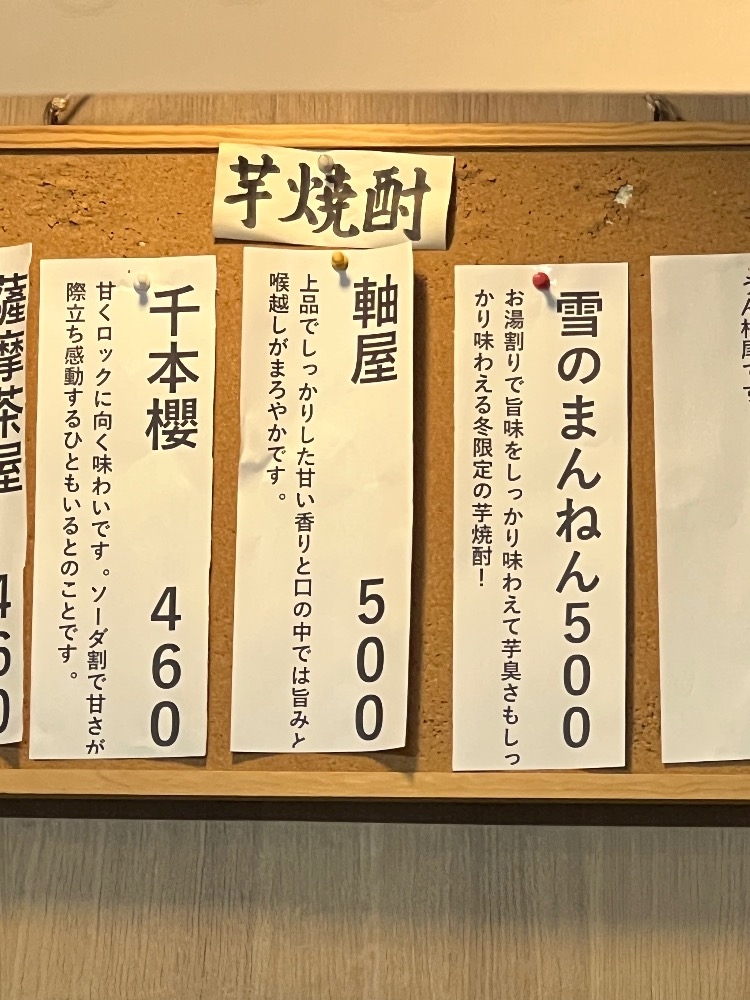 芋焼酎
雪のまんねん500
お湯割りで旨味をしっかり味わえて芋臭さもしっ
かり味わえる冬限定の芋焼酎！
軸屋 500
上品でしっかりした甘い香りと口の中では旨みと
喉越しがまろやかです。
千本櫻 460
甘くロックに向く味わいです。ソーダ割で甘さが
際立ち感動するひともいるとのことです。
薩摩茶屋 460